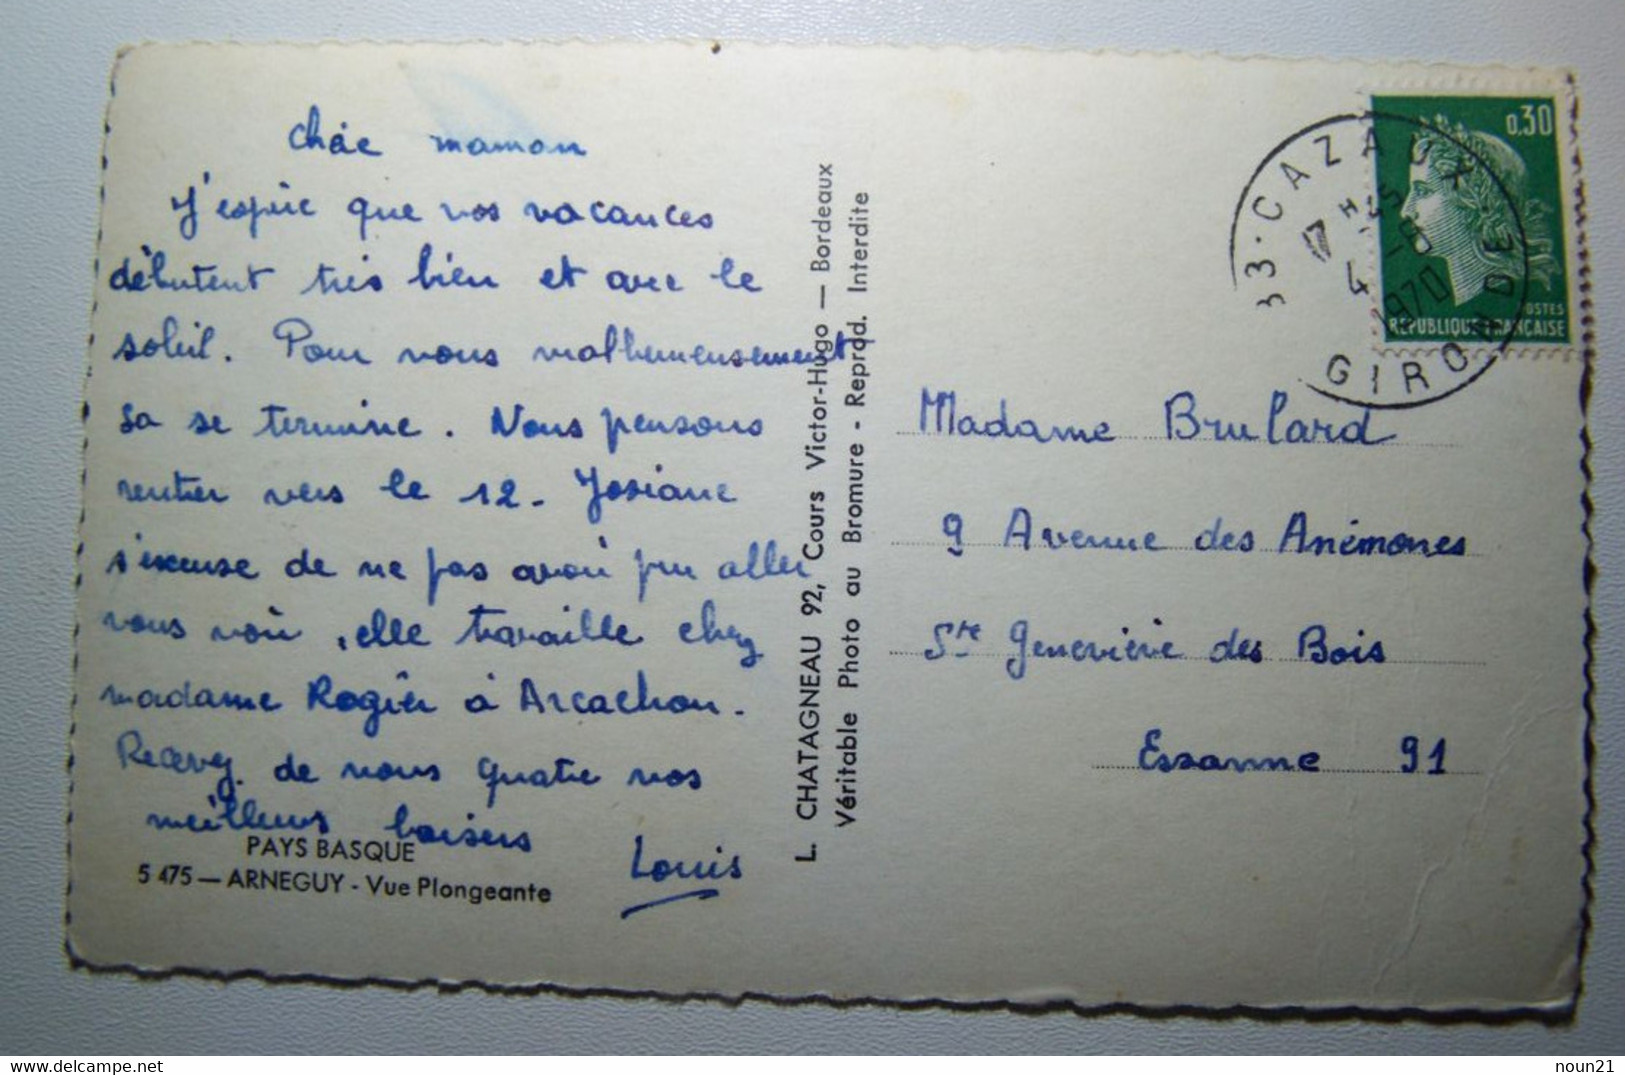 chère maman
J'espère que vos vacances
débutent très bien et avec le
soleil. Pour nous malheureusement
sa se termine. Nous pensons
rentrer vers le 12. Josiane
s'excuse de ne pas avoir pu aller
vous voir, elle travaille chez
madame Rogier à Arcachon.
Recevez de nous quatre nos
meilleurs baisers
Louis
PAYS BASQUE
5 475 — ARNEGUY - Vue Plongeante
L. CHATAGNEAU 92, Cours Victor-Hugo — Bordeaux
Véritable Photo au Bromure - Reprod. Interdite
0,30
POSTES
REPUBLIQUE FRANÇAISE
33 · CAZAUX
4 - 8
1970
GIRONDE
Madame Brulard
9 Avenue des Anémones
Ste Geneviève des Bois
Essonne 91
delcampe.net
noun21